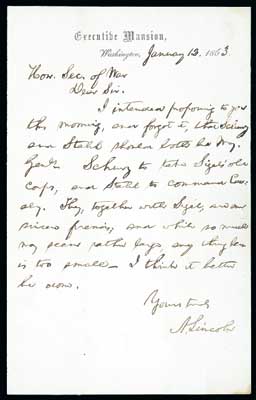 Executive Mansion,
Washington, January 12, 1863.
Hon. Sec. of War
Dear Sir.
I intended proposing to you
this morning, and forgot it, that Schurz
and Stahl should both be Maj.
Genls. Schurz to take Sigel's old
corps, and Stahl to command Cav-
alry. They, together with Sigel, are our
sincere friends, and while so much
may seem rather large, any thing less
is too small. I think it better
be done.
Yours truly
A. Lincoln